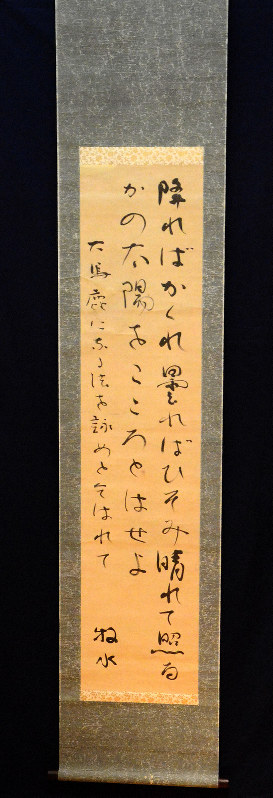 降ればかくれ曇ればひそみ晴れて照る
かの太陽をこころとはせよ
大馬鹿になる法を詠めと云はれて
牧水